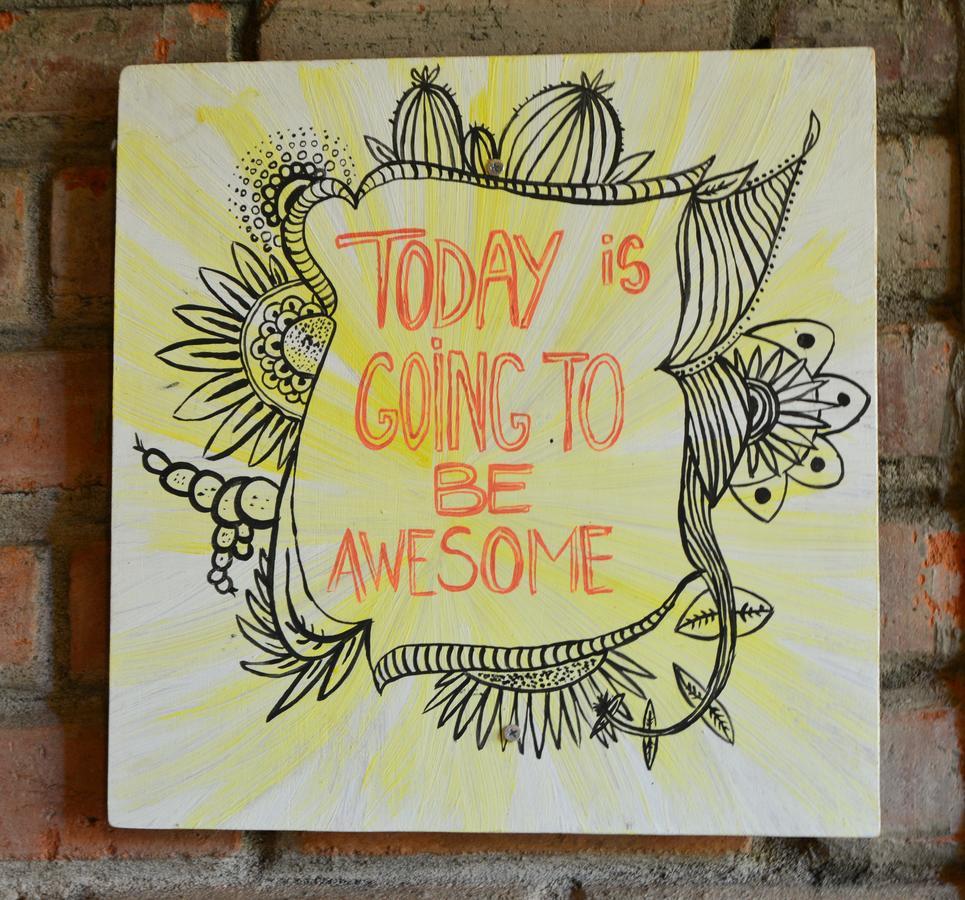 TODAY is
GOiNG TO
BE
AWESOME